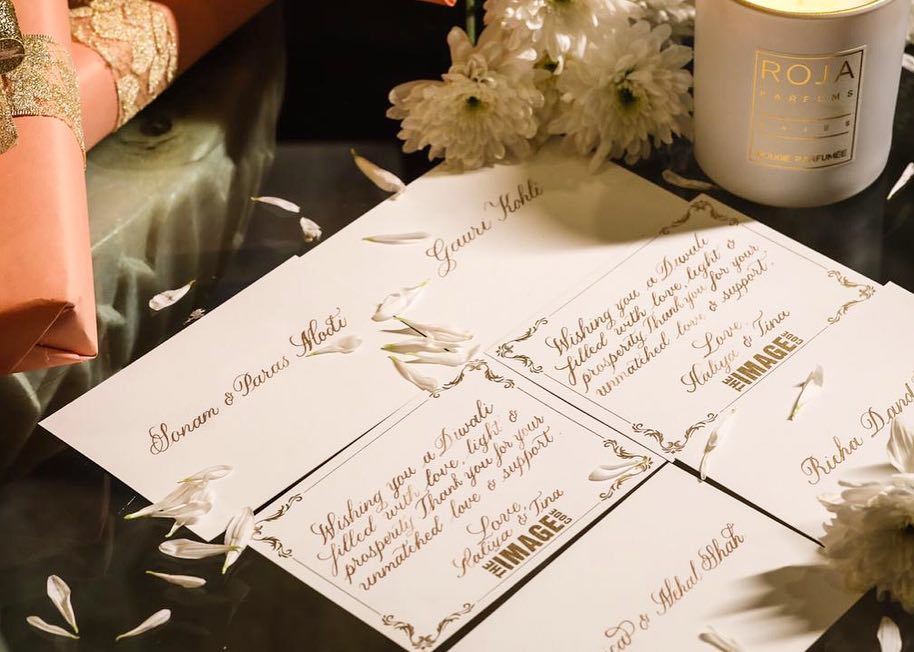 ROJA
PARFUMS
BOUGIE PARFUMÉE
Gauri Kohli
Sonam & Paras Modi
Wishing you a Diwali
filled with love, light &
prosperity. Thank you for your
unmatched love & support.
Love,
& Tina
THE IMAGE CO
Wishing you a Diwali
filled with love, light &
prosperity. Thank you for your
unmatched love & support.
Love,
& Tina
THE IMAGE CO
Richa Dand
& Achal Shah